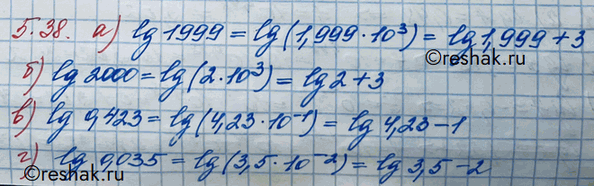 5.38. а) lg 1999 = lg(1,999·10³) = lg 1,999 + 3
©reshak.ru
б) lg 2000 = lg(2·10³) = lg 2 + 3
в) lg 0,423 = lg(4,23·10⁻¹) = lg 4,23 - 1
г) lg 0,035 = lg(3,5·10⁻²) = lg 3,5 - 2
©reshak.ru